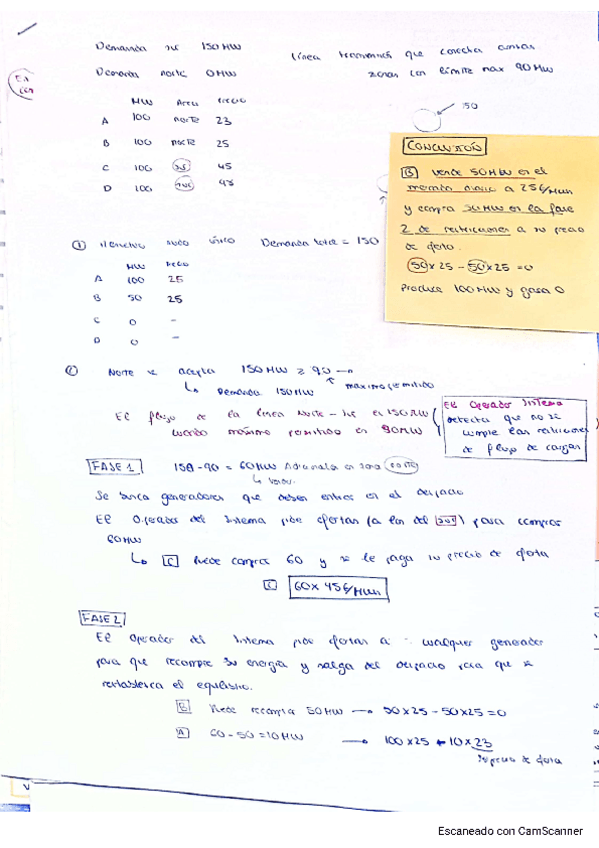 Demanda sur 150 MW
línea transmisión que conecta ambas
Demanda norte 0 MW
zonas con límite max 90 MW
MW Area Precio
A 100 norte 23
B 100 norte 25
C 100 sur 45
D 100 sur
150
CONCLUSIÓN
B vende 50 MW en el
mercado diario a 25€/MWh
y compra 50 MW en la fase
2 de restricciones a su precio
de oferta.
50 x 25 - 50 x 25 = 0
Produce 100 MW y gana 0
① Mercado nudo único Demanda total = 150
MW Precio
A 100 25
B 50 25
C 0 -
D 0 -
② Norte se acepta 150 MW ≥ 90
↳ Demanda 150 MW máximo permitido
El flujo de la línea Norte - sur es 150 MW
siendo máximo permitido es 90 MW
El Operador Sistema
detecta que no se
cumple las restricciones
de flujo de cargas
FASE 1 150 - 90 = 60 MW adicionales en zona
Se busca generadores que deben entrar en el despacho
El Operador del Sistema pide ofertas (a los del sur) para comprar
60 MW
↳ C Puede comprar 60 y se le paga su precio de oferta
C 60 x 45€/MWh
FASE 2
El Operador del Sistema pide ofertas a cualquier generador
para que recompre su energía y salga del despacho para que se
restablezca el equilibrio.
B Puede recomprar 50 MW → 50 x 25 - 50 x 25 = 0
A 60 - 50 = 10 MW → 100 x 25 - 10 x 23
su precio de oferta
Escaneado con CamScanner